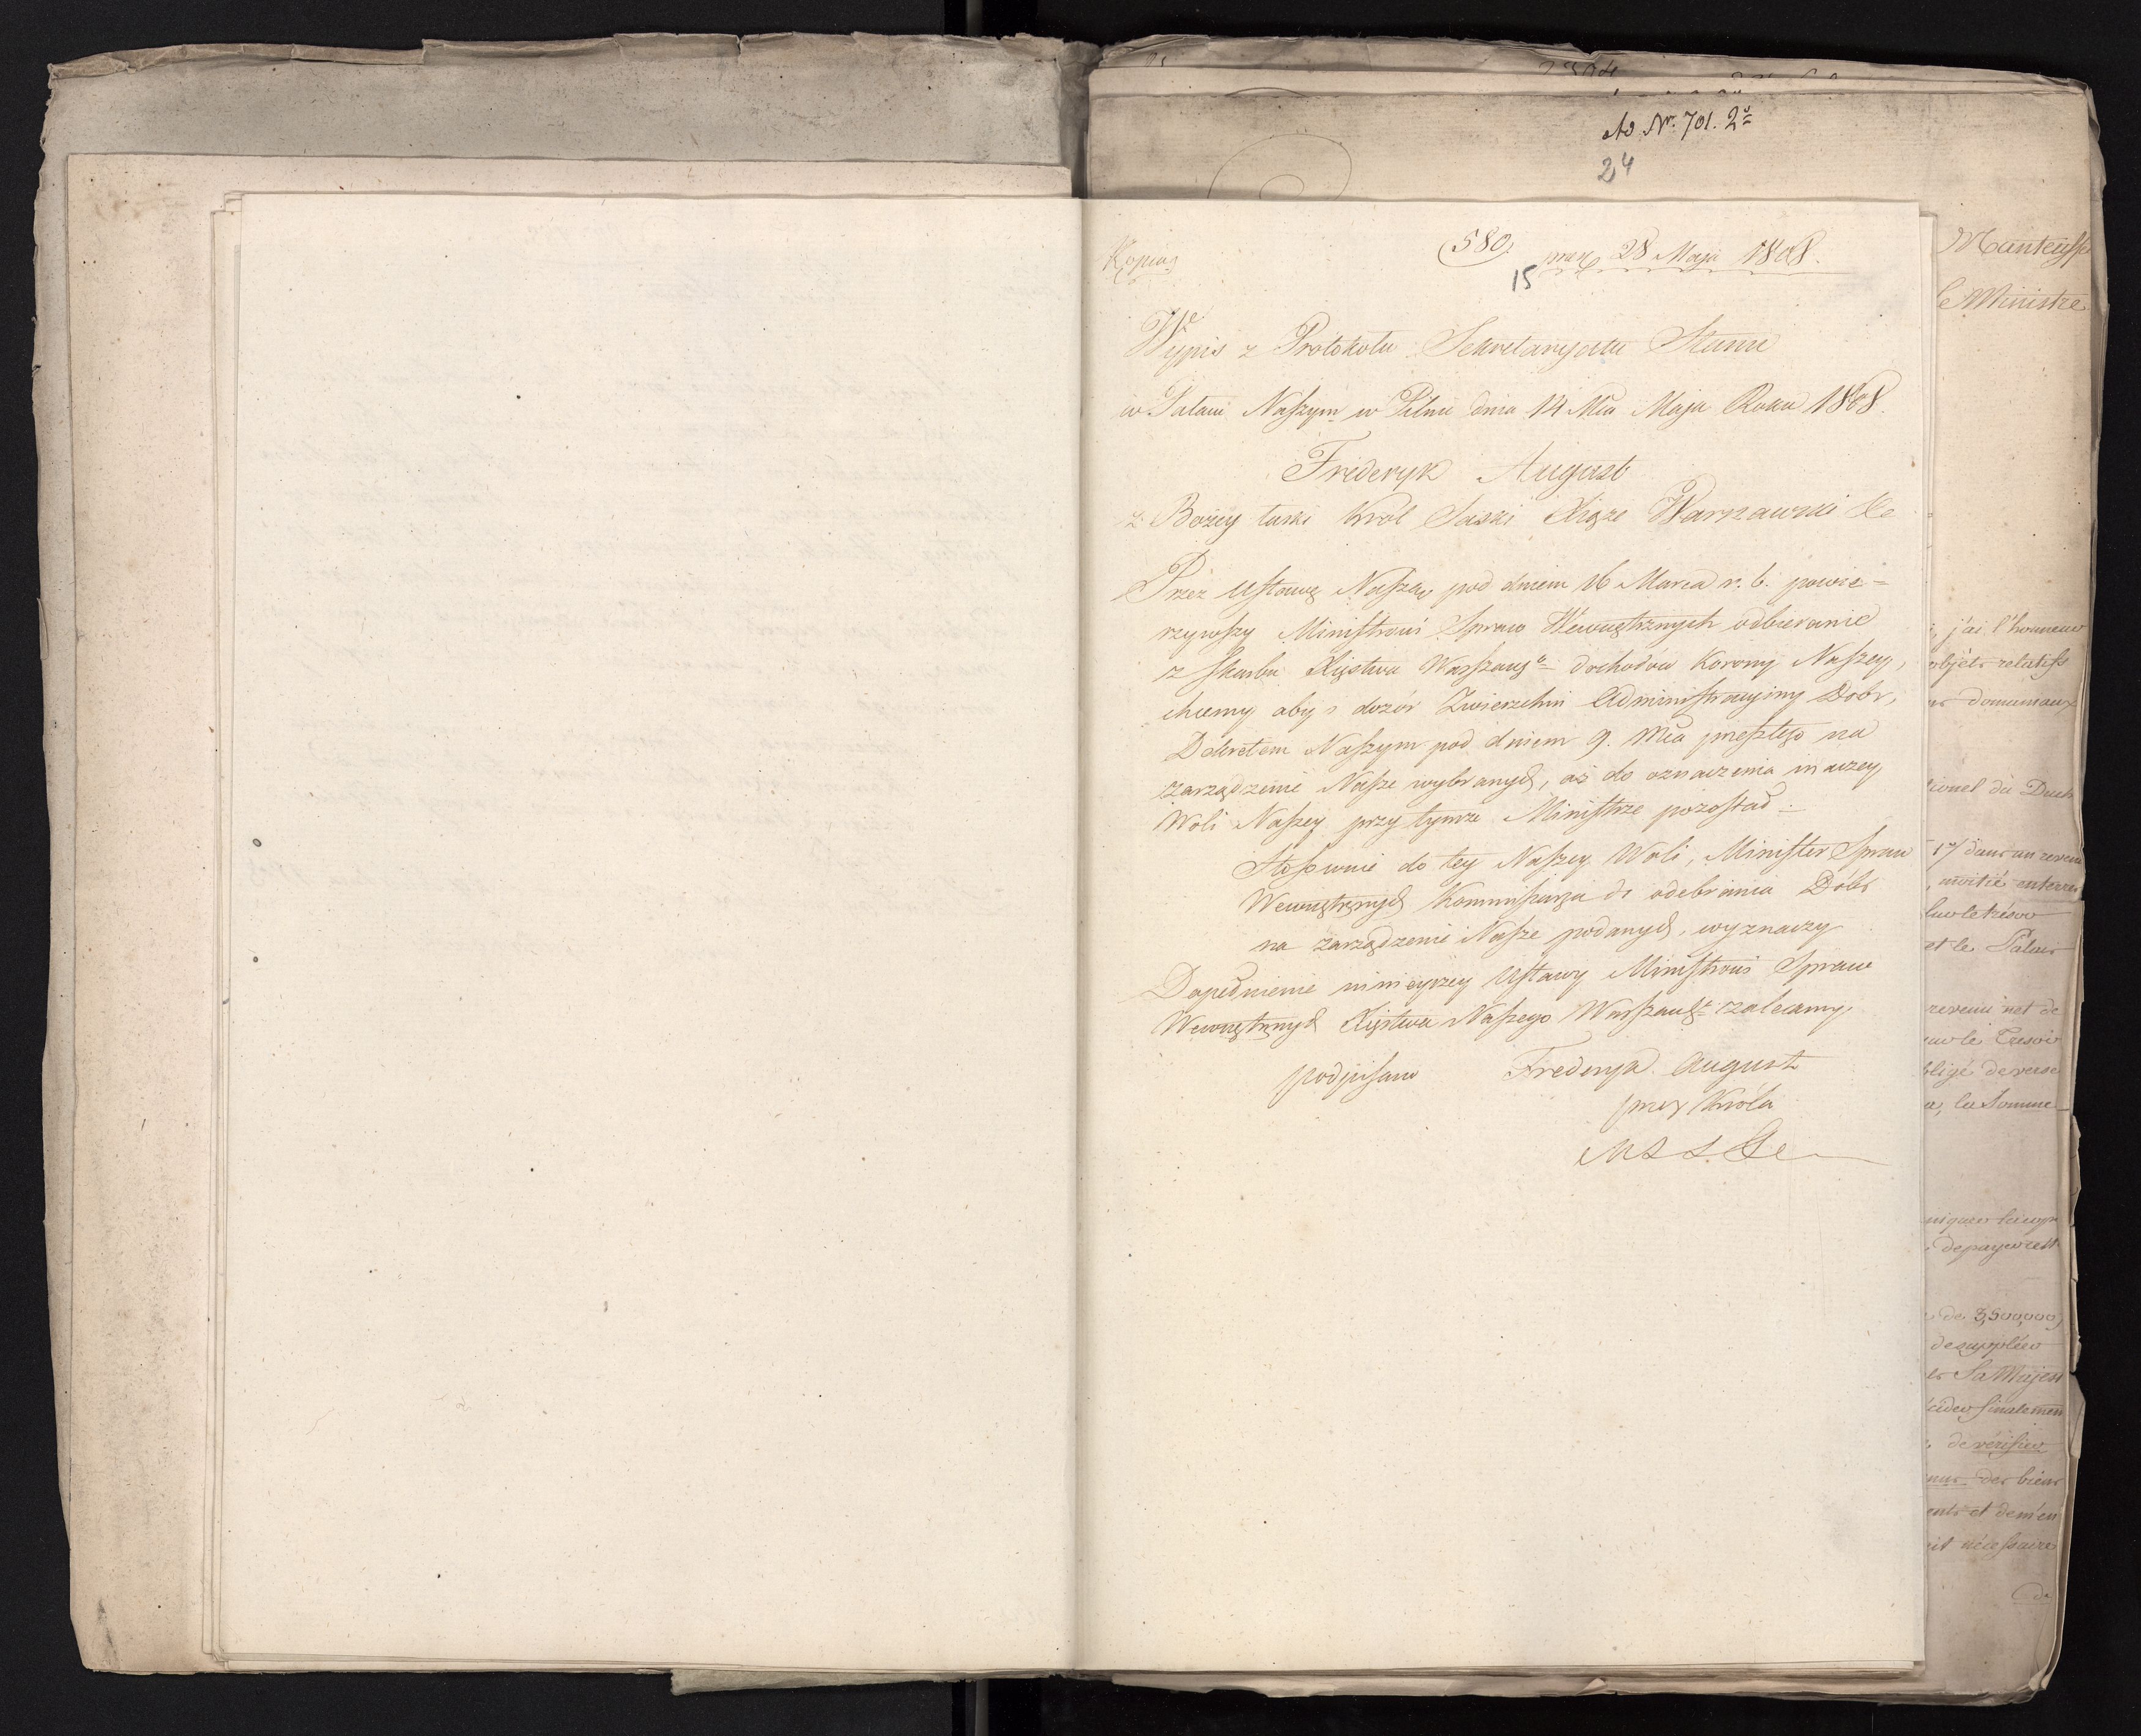 Ad Nr. 701. 2
24
Kopia
580. prez 28 Maja 1808.
15
Wypis z Protokołu Sekretaryatu Stanu
w Pałacu Naszym w Pilnic dnia 14 Mca Maja Roku 1808.
Frideryk August
z Bożey łaski Król Saski Xiąże Warszawski &c
Przez Ustawę Naszą pod dniem 16 Marca r. b. powie=
rzywszy Ministrowi Spraw Wewnętrznych odbieranie
z Skarbu Xięstwa Warszawgo dochodów Korony Naszey,
chcemy aby dozór Zwierzchni Administracyiny Dobr,
Dekretem Naszym pod dniem 9. Mca przeszłego na
zarządzenie Nasze wybranych, aż do oznaczenia inaczey
Woli Naszey przy tymże Ministrze pozostał.
Stosownie do tey Naszey Woli, Minister Spraw
Wewnętrznych Kommissarza do odebrania Dóbr
na zarządzenie Nasze podanych, wyznaczy
Dopełnienie ninieyszey Ustawy Ministrowi Spraw
Wewnętrznych Xięstwa Naszego Warszawsk: zalecamy.
podpisano Frederyk August
przez Króla
M S S. &c
Manteuffe
le Ministre
j'ai l'honneur
objets relatifs
domaniaux
du Duch
17 dans un revenu
moitié enterre
et le Palais
revenu net de
le Tresor
de verse
la Somme
de payer cett
de 3,500,000
de suppléer
Sa Majest
finalemen
de vérifier
des biens
et dem'en
nécessaire
de